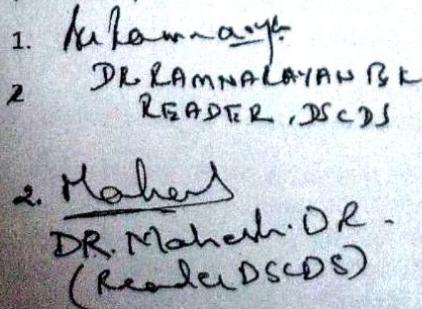 1.
DR. RAMNARAYAN B K
2 READER, DSCDS
2. Mahesh
DR. Mahesh. D R.
(Reader DSCDS)